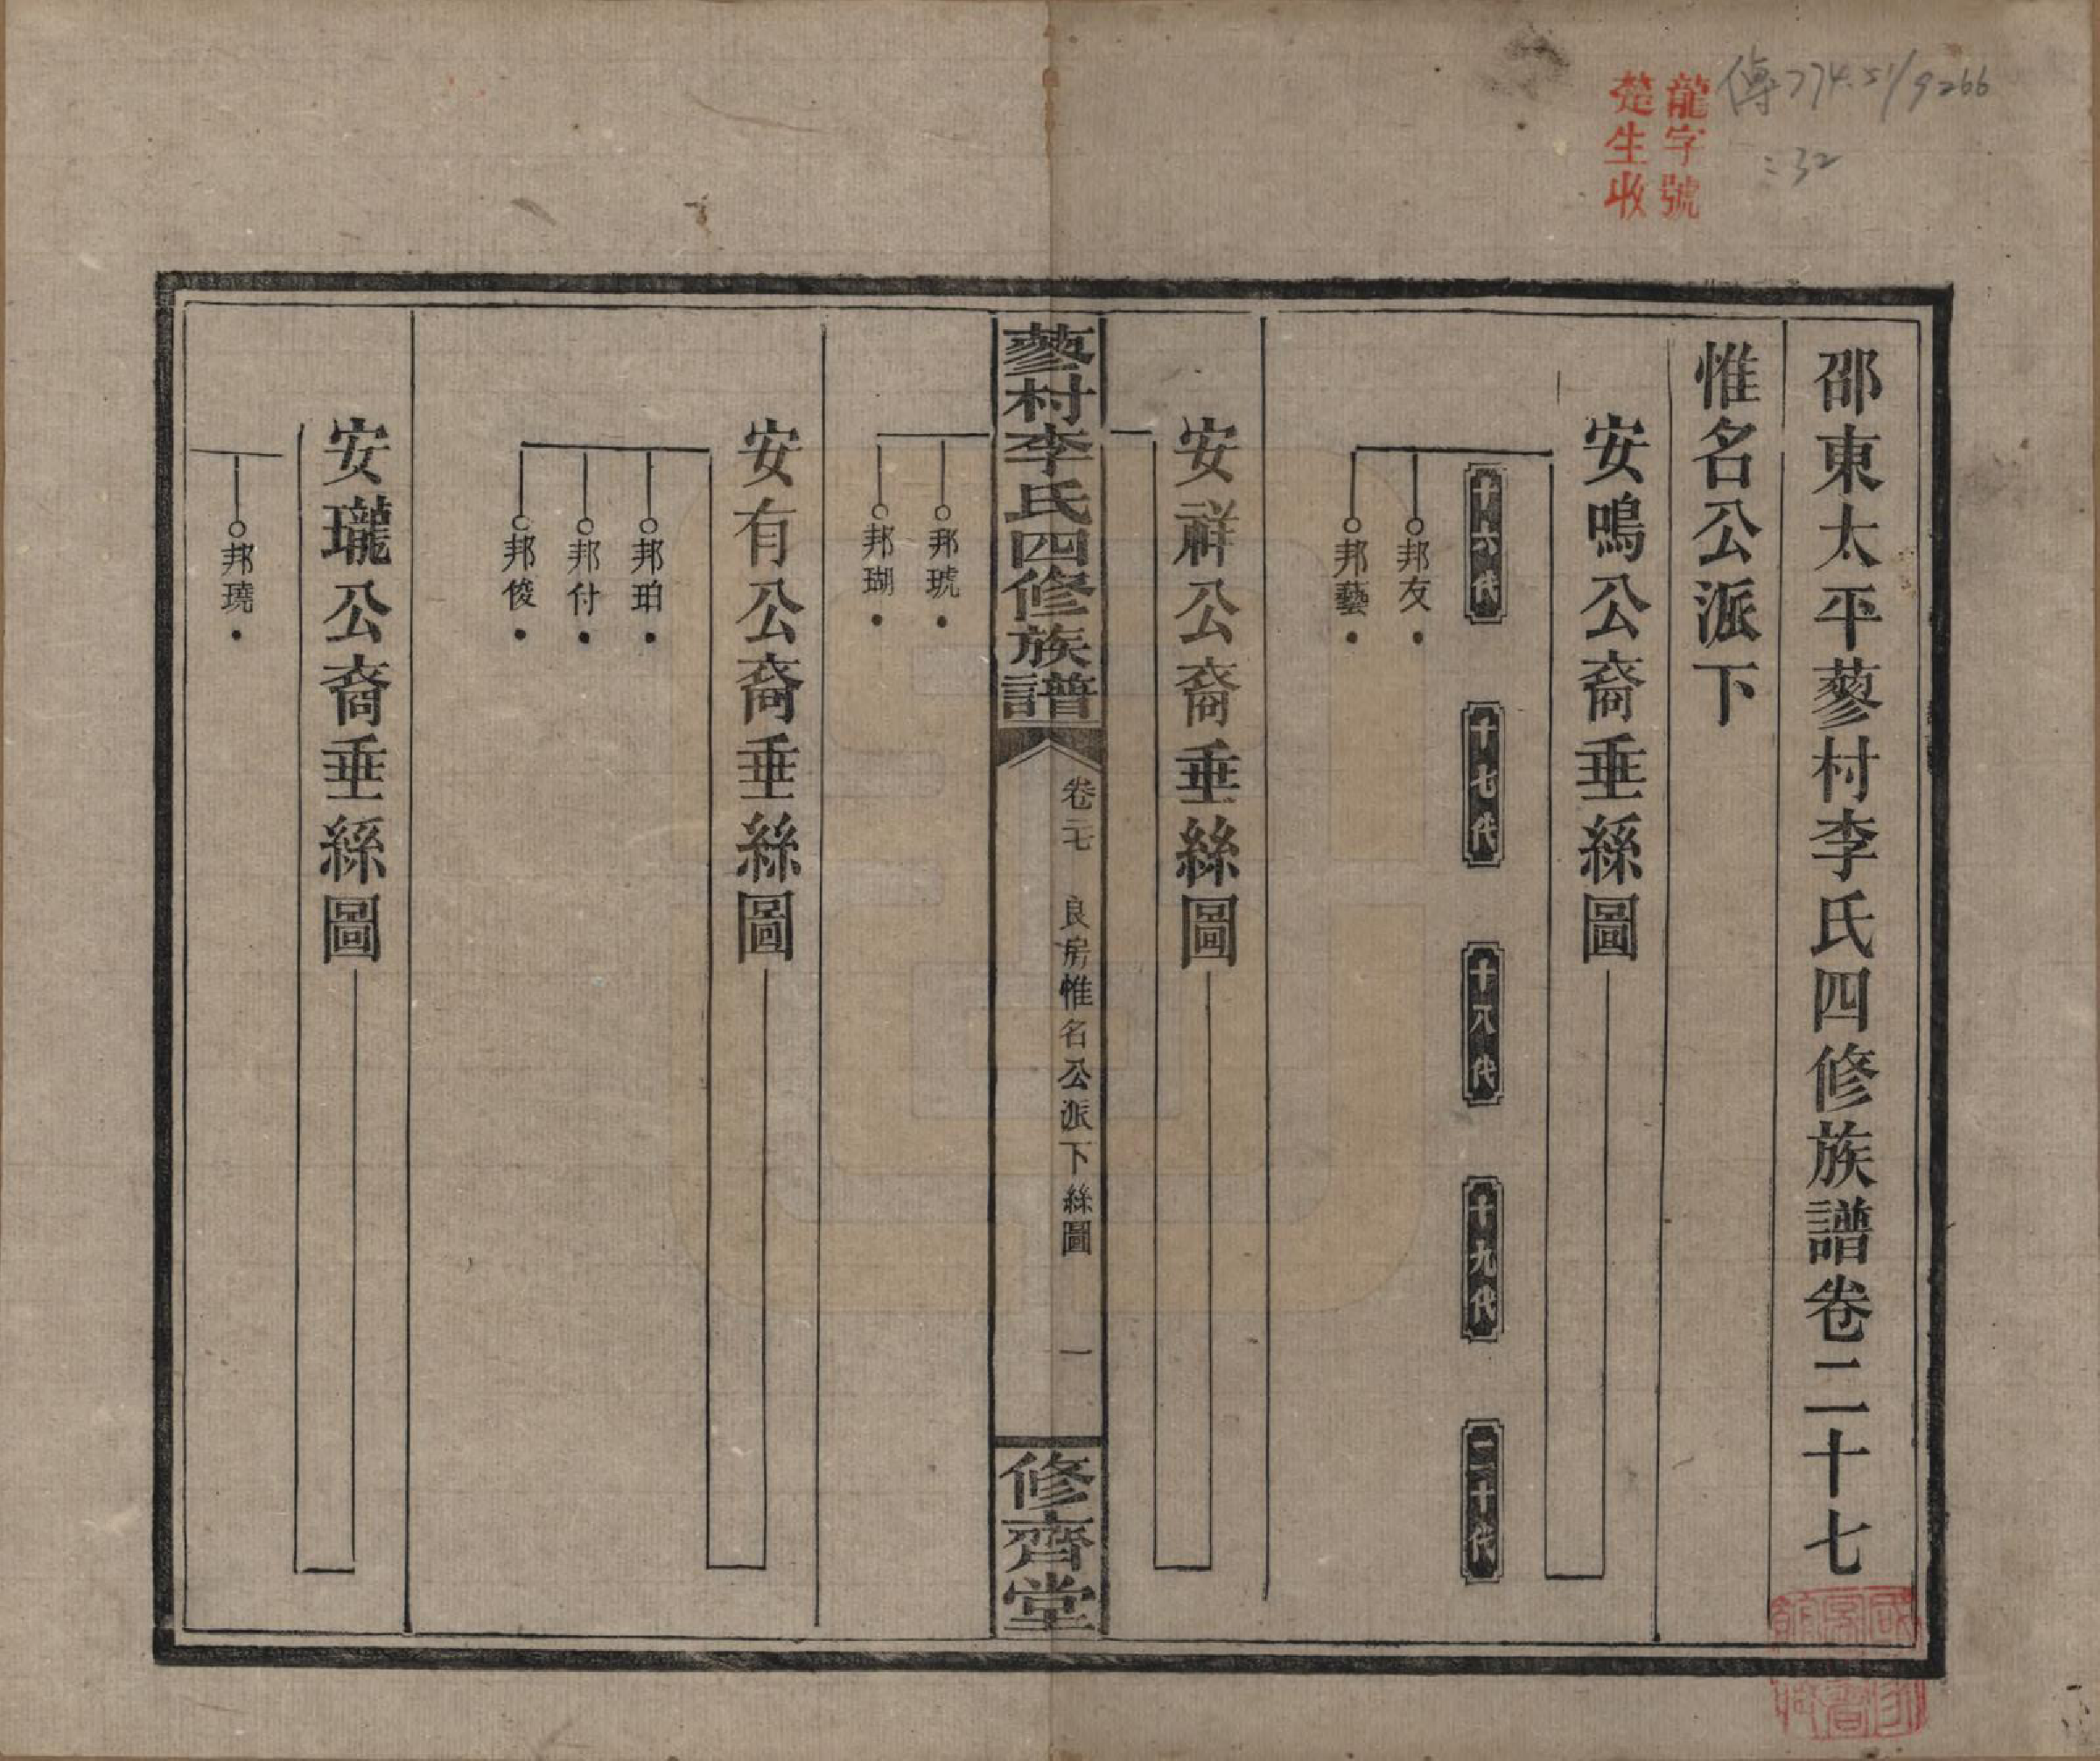 傳774.51/9266
:32
龍字號
楚生收
邵東太平蓼村李氏四修族譜卷二十七
惟名公派下
安鳴公裔垂絲圖
十六代
十七代
十八代
十九代
二十代
邦友
邦藝
安祥公裔垂絲圖
蓼村李氏四修族譜
卷二七
良房惟名公派下絲圖
一
修齊堂
邦琥
邦瑚
安有公裔垂絲圖
邦珀
邦付
邦俊
安瓏公裔垂絲圖
邦璄